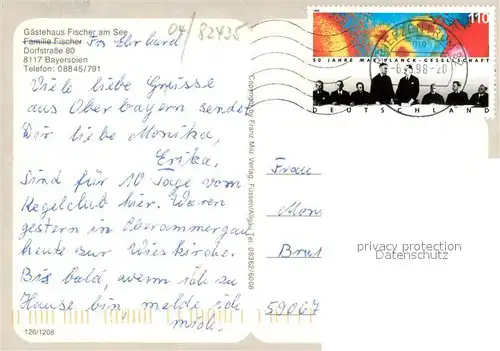 04/82435
Gästehaus Fischer am See
Familie Fischer Frs Ehrhard
Dorfstraße 80
8117 Bayersoien
Telefon: 08845/791
Viele liebe Grüsse
aus Oberbayern sendet
Dir liebe Monika,
Erika.
Sind für 10 Tage vom
Kegelclub hier. Waren
gestern in Oberammergau
heute zur Wieskirche.
Bis bald, wenn ich zu
Hause bin, melde ich
mich.
126/1208
Copyright by Franz Milz Verlag, Füssen/Allgäu Tel. 08362/6008
110
50 JAHRE MAX-PLANCK-GESELLSCHAFT
DEUTSCHLAND
98-20
Frau
Mon
Brut
59067
privacy protection
Datenschutz